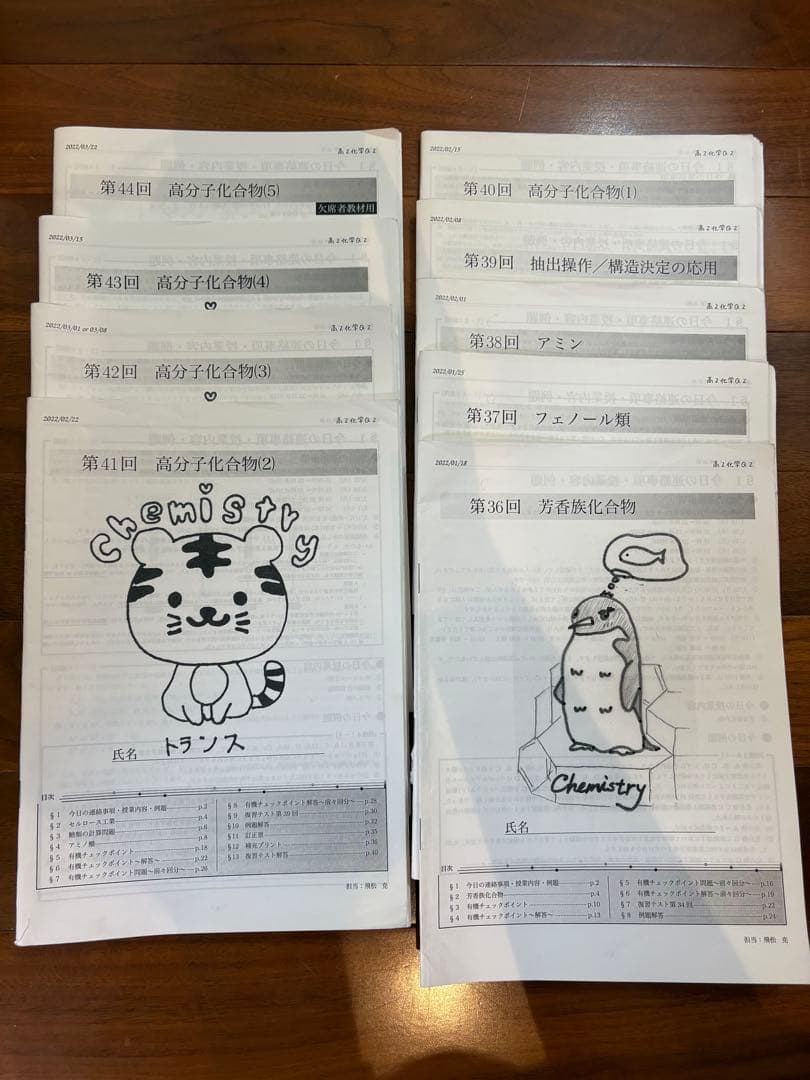 2022/03/22
高2化学G2
第44回 高分子化合物(5)
欠席者教材用
2022/03/15
高2化学G2
第43回 高分子化合物(4)
2022/03/01 or 03/08
高2化学G2
第42回 高分子化合物(3)
2022/02/22
高2化学G2
第41回 高分子化合物(2)
Chemistry
トランス
氏名
目次
§1 今日の連絡事項・授業内容・例題 p.2
§2 セルロース工業 p.4
§3 糖類の計算問題 p.6
§4 アミノ酸 p.8
§5 有機チェックポイント p.18
§6 有機チェックポイント~解答~ p.22
§7 有機チェックポイント問題~前々回分~ p.26
§8 有機チェックポイント解答~前々回分~ p.28
§9 復習テスト第39回 p.30
§10 例題解答 p.32
§11 訂正書 p.35
§12 補充プリント p.36
§13 復習テスト解答 p.40
担当:飛松 亮
2022/02/15
高2化学G2
第40回 高分子化合物(1)
2022/02/08
高2化学G2
第39回 抽出操作/構造決定の応用
2022/02/01
高2化学G2
第38回 アミン
2022/01/25
高2化学G2
第37回 フェノール類
2022/01/18
高2化学G2
第36回 芳香族化合物
Chemistry
氏名
目次
§1 今日の連絡事項・授業内容・例題 p.2
§2 芳香族化合物 p.4
§3 有機チェックポイント p.10
§4 有機チェックポイント~解答~ p.13
§5 有機チェックポイント問題~前々回分~ p.16
§6 有機チェックポイント解答~前々回分~ p.19
§7 復習テスト第34回 p.22
§8 例題解答 p.24
担当:飛松 亮